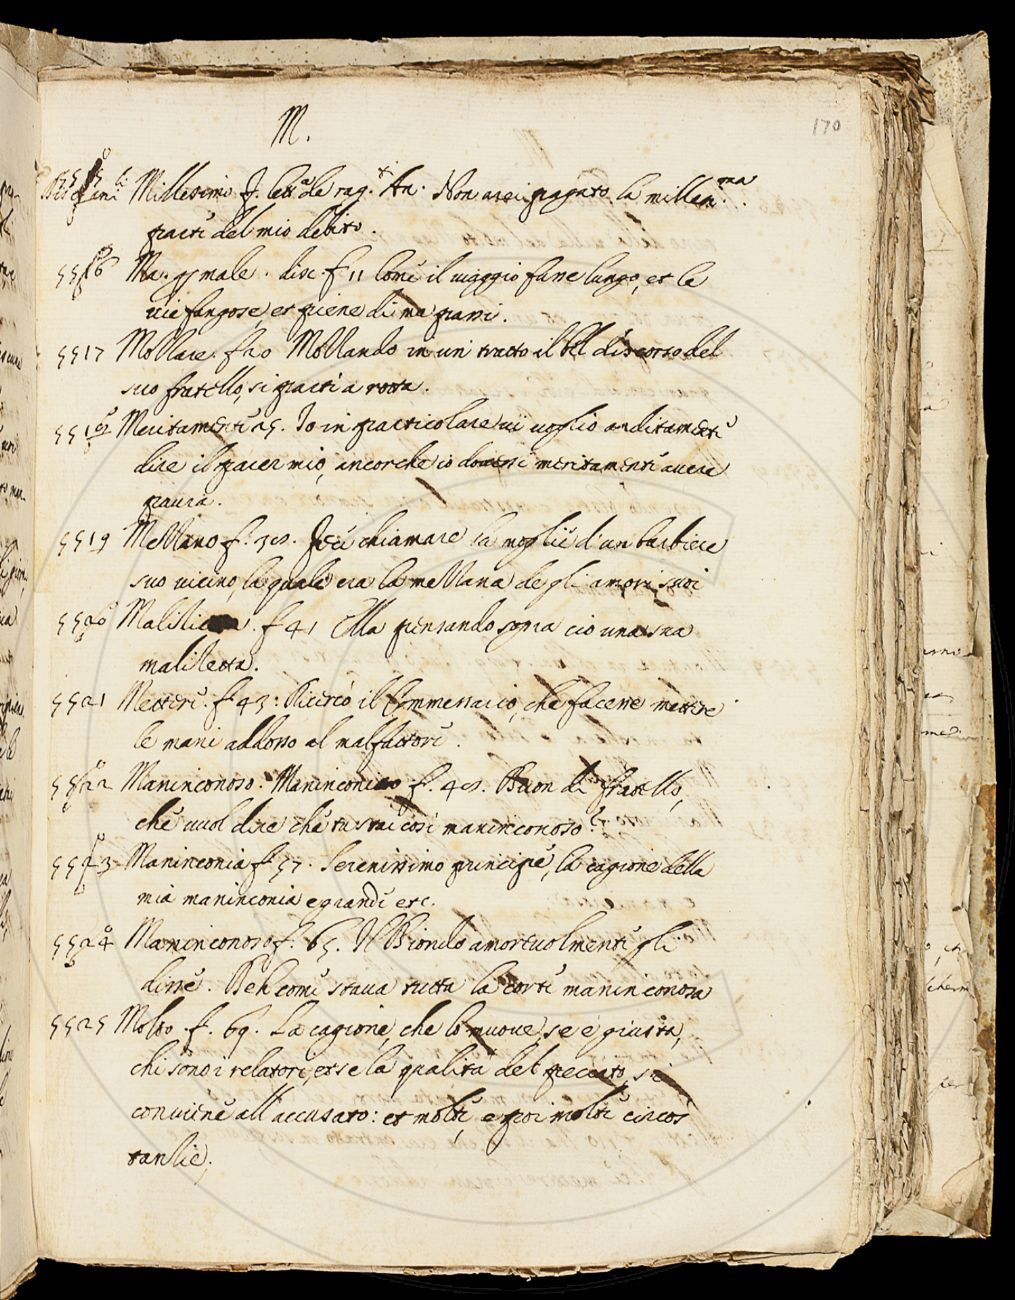 M.
170
Millesimo. f. Non arei pagato la millesma
parte del mio debito.
5516 Ma. p male. disc. f 11 Come il viaggio fusse lungo, et le
vie fangose, et piene di ma passi.
5517 Mozzare. f 20 Mozzando in un tratto il bel discorso del
suo fratello, si partì a rotta.
5518 Meritamente 25. Io in particolare vi voglio arditamente
dire il parer mio, ancorche io dovessi meritamente avere
paura.
5519 Mezzano f. 38. Fece chiamare la moglie d'un barbiere
suo vicino, la quale era la mezzana de gli amori suoi
5520 f 41 Ella pensando sopra ciò una sua
malizietta.
5521 Mettere. f 43: Ricercò il Commessario, che facesse mettere
le mani addosso al malfattore.
5522 Maninconoso. Maninconico f. 48. Buon dì fratello,
che vuol dire che tu stai così maninconoso?
5523 Maninconia f. 57. Serenissimo principe, la cagione della
mia maninconia e grande etc.
5524 Maninconoso f. 65. Il Biondo amorevolmente gli
disse: Beh come stava tutta la corte maninconosa
5525 Molto. f. 69. La cagione, che lo muove, se è giusta,
chi sono i relatori, et se la qualità del peccato, si
conviene all'accusato: et molte, e poi molte circos
tanzie.